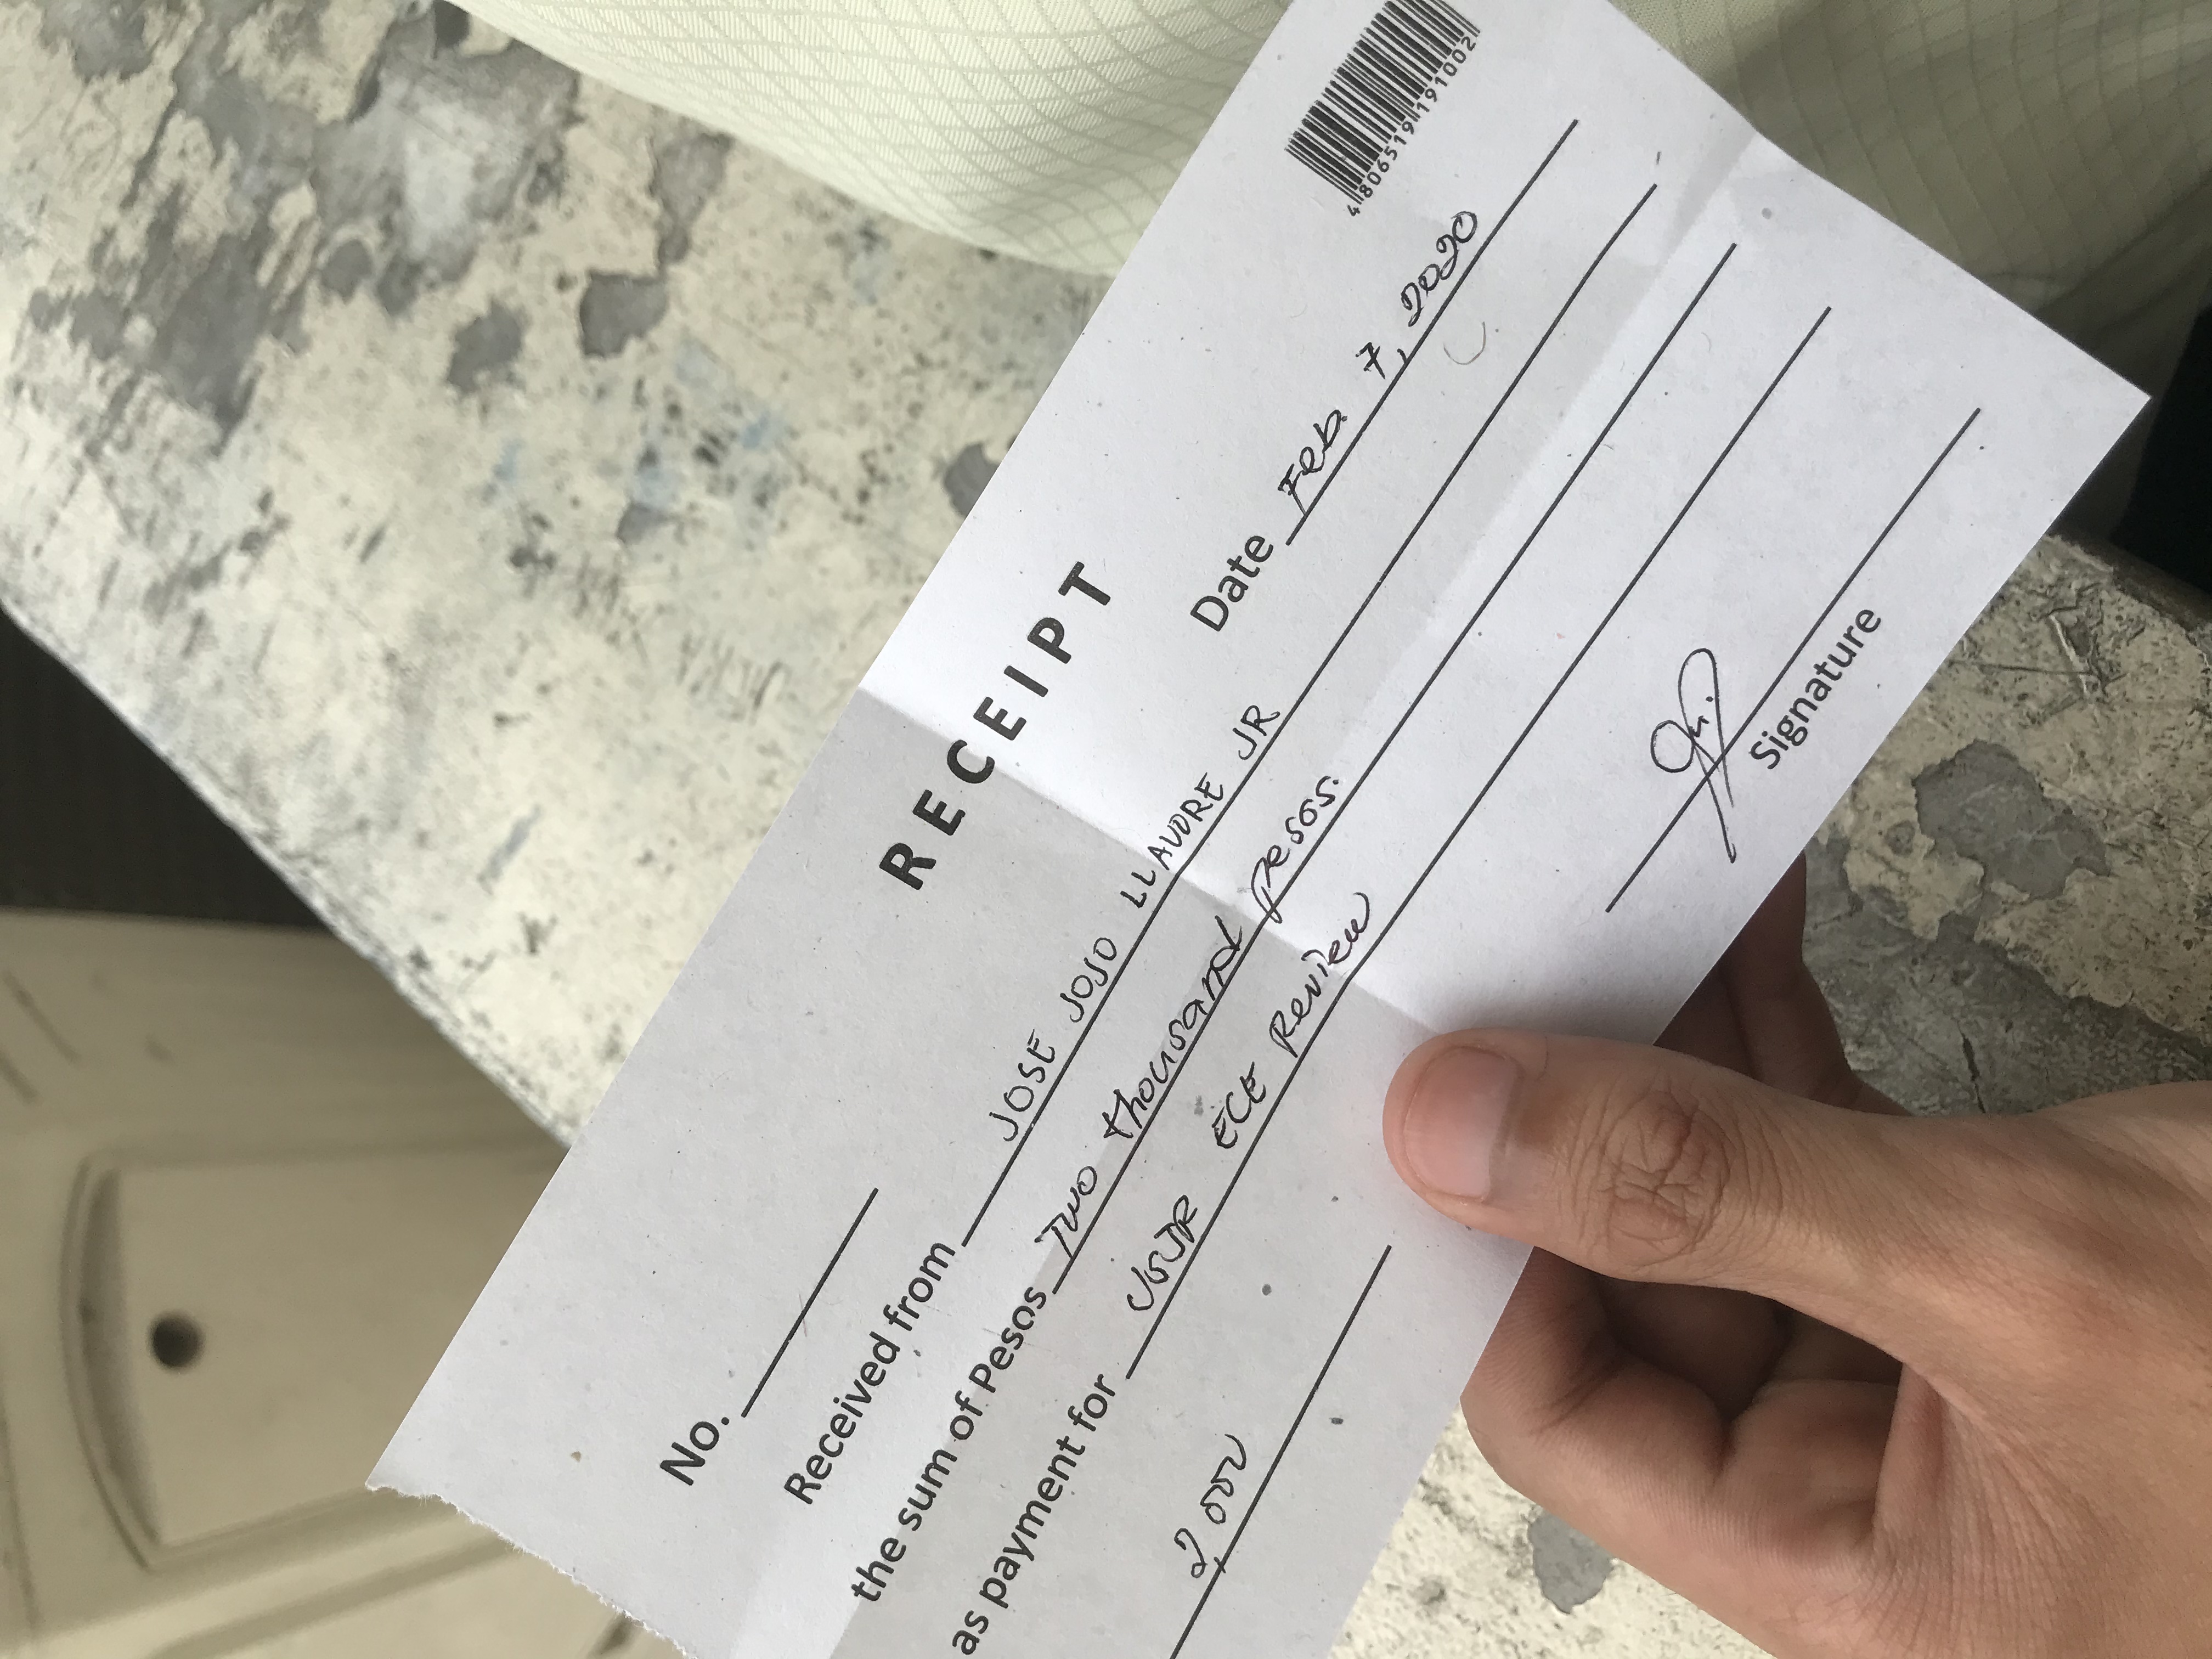 4 806519 191002
RECEIPT
No.
Date Feb. 7, 2020
Received from JOSE JOJO LLAVORE JR
the sum of Pesos Two thousand pesos.
as payment for ECE Review
2,000
Signature